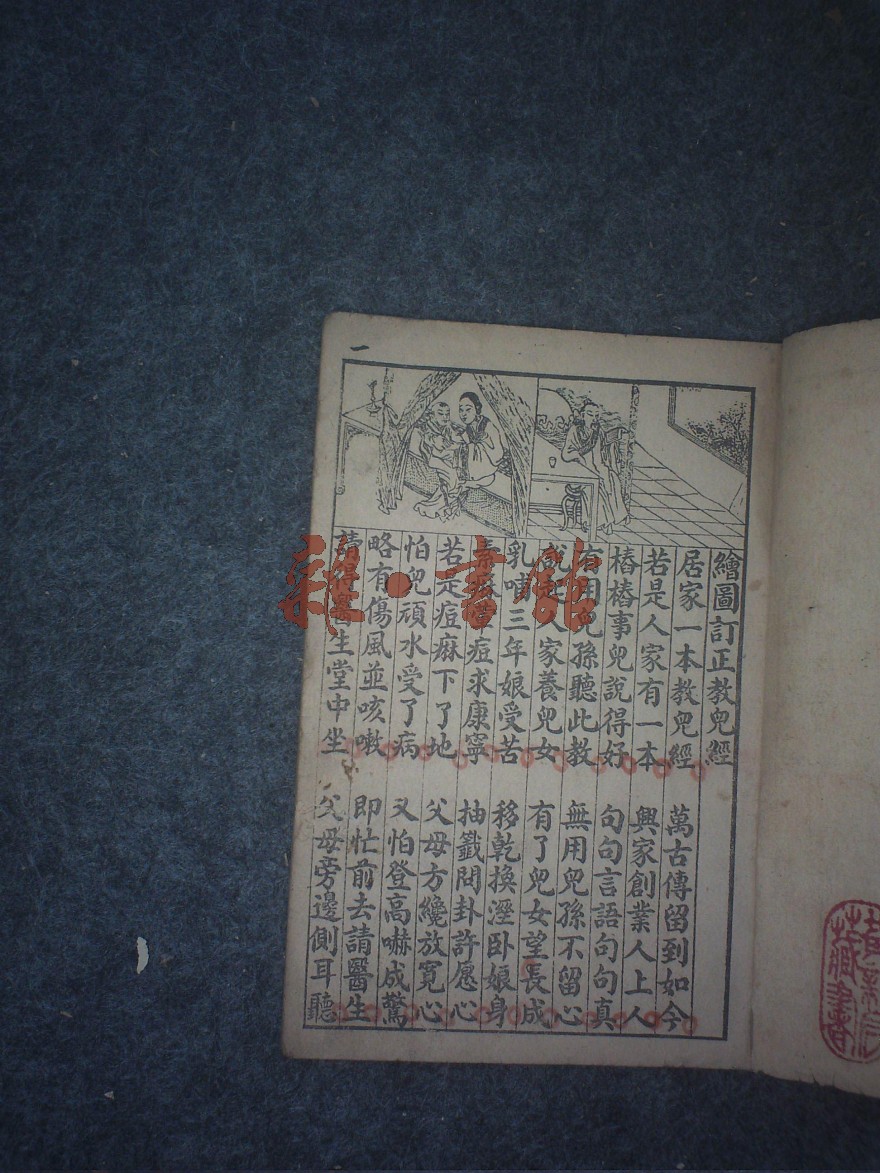 繪圖訂正教兒經
居家一本教兒經 萬古傳留到如今
若是人家有一本 興家創業人上人
樁樁事兒說得好 句句言語句句真
有用兒孫聽此教 無用兒孫不留心
人家養兒女 有了兒女望長成
乳哺三年娘受苦 移乾換溼卧娘身
痘求康寧 抽籤問卦許愿心
若是痘痳下了地 父母方纔放寬心
怕兒頑水受了病 又怕登高嚇成驚
略有傷風並咳嗽 即忙前去請醫生
請得醫生堂中坐 父母旁邊側耳聽
一
雜·書館